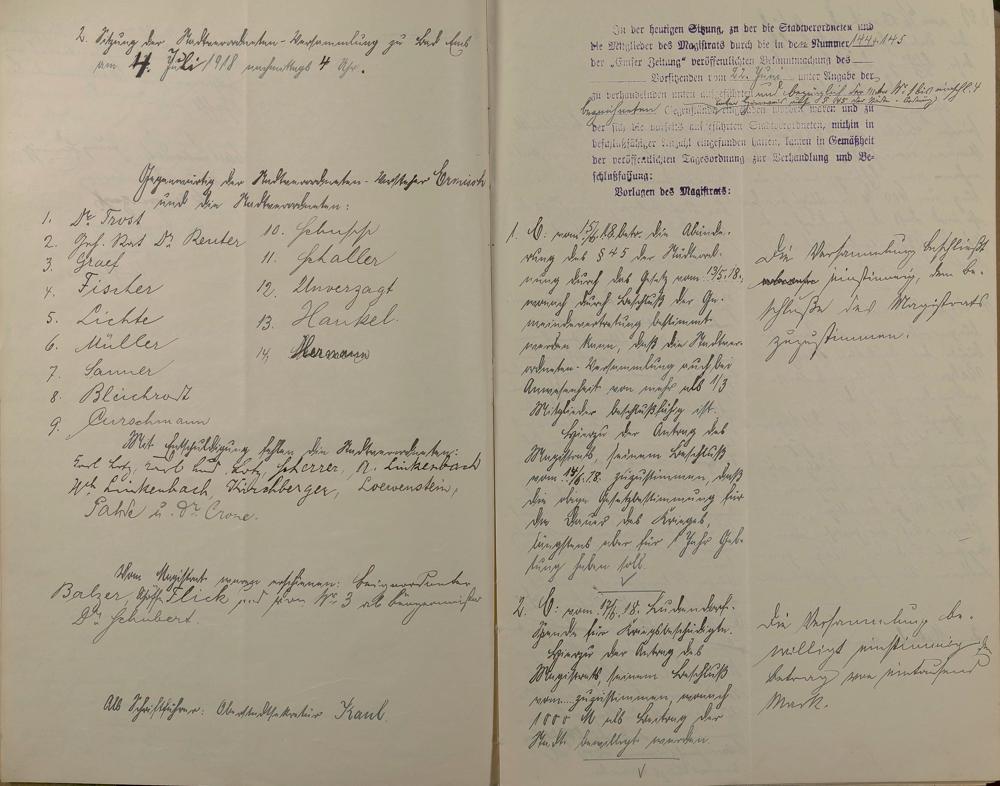 2. Sitzung der Stadtverordneten-Versammlung zu Bad Ems
am 4. Juli 1918 nachmittags 4 Uhr.
Gegenwärtig der Stadtverordneten-Vorsteher Ermisch
und die Stadtverordneten:
1. Dr. Trost
2. Geh. Rat Dr. Reuter
3. Graef
4. Fischer
5. Lichte
6. Müller
7. Sanner
8. Bleichrodt
9. Curschmann
10. Schupp
11. Schaller
12. Unverzagt
13. Hankel.
14. Hermann
Mit Entschuldigung fehlen die Stadtverordneten:
Karl Lotz, Lotz, Scherrer, A. Linkenbach
Wh. Linkenbach, Kirschberger, Loewenstein,
Pahde u. Dr. Crone.
Vom Magistrat waren erschienen: Beigeordneter
Balzer, Flick und von Nr. 3 ab Bürgermeister
Dr. Schubert.
Als Schriftführer: Oberstadtsekretär Kaul
In der heutigen Sitzung, zu der die Stadtverordneten und
die Mitglieder des Magistrats durch die in den Nummer 144 u. 145
der „Emser Zeitung" veröffentlichten Bekanntmachung des
Vorsitzenden vom 22. Juni unter Angabe der
zu verhandelnden unten aufgeführten und bezüglich der unter Nr. 1 bis einschl. 4
bezeichneten Gegenstände eingeladen worden waren und zu
der sich die vorseits aufgeführten Stadtverordneten, mithin in
beschlußfähiger Anzahl eingefunden hatten, kamen in Gemäßheit
der veröffentlichten Tagesordnung zur Verhandlung und Be-
schlußfassung:
Vorlagen des Magistrats:
1. E. vom 15/6.18. betr. die Abände-
rung des § 45 der Städteord-
nung durch das Gesetz vom 13/5.18.,
wonach durch Beschluß der Ge-
meindevertretung bestimmt
werden kann, daß die Stadtver-
ordneten-Versammlung auch bei
Anwesenheit von mehr als 1/3
Mitglieder beschlußfähig ist.
Hierzu der Antrag des
Magistrats, seinem Beschluß
vom 18. zuzustimmen, daß
die obige Gesetzbestimmung für
die Dauer des Krieges,
längstens aber für 1 Jahr Gel-
tung haben soll.
Die Versammlung beschließt
einstimmig, dem Be-
schluße des Magistrats
zuzustimmen.
2. E. vom 17/6.18. Ludendorff-
Spende für Kriegsbeschädigte.
Hierzu der Antrag des
Magistrats, seinem Beschluß
vom ... zuzustimmen, wonach
1000 M als Beitrag der
Stadt bewilligt werden.
Die Versammlung be-
willigt einstimmig den
Betrag von eintausend
Mark.